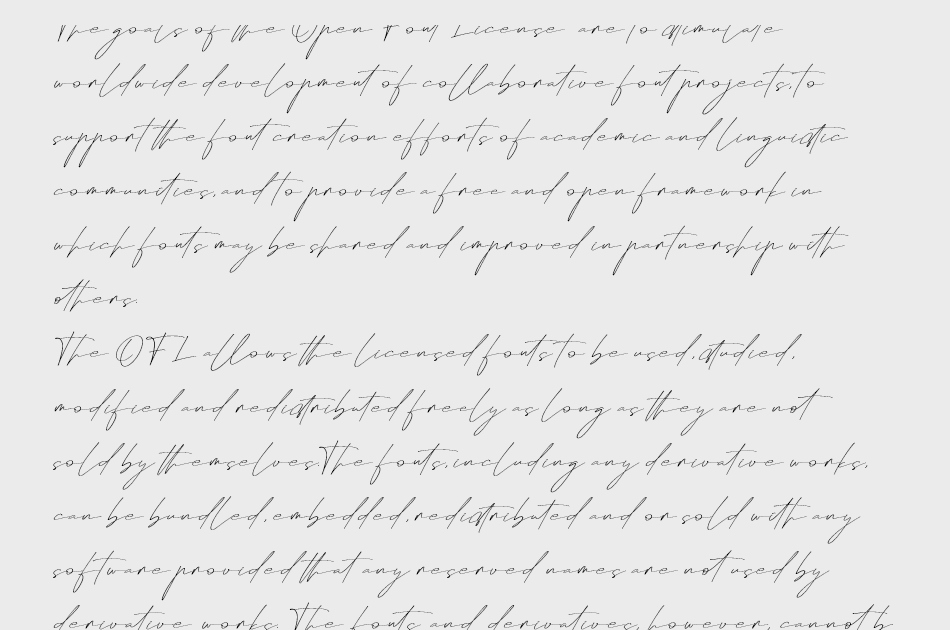 The goals of the Open Font License are to stimulate
worldwide development of collaborative font projects, to
support the font creation efforts of academic and linguistic
communities, and to provide a free and open framework in
which fonts may be shared and improved in partnership with
others.
The OFL allows the licensed fonts to be used, studied,
modified and redistributed freely as long as they are not
sold by themselves. The fonts, including any derivative works,
can be bundled, embedded, redistributed and or sold with any
software provided that any reserved names are not used by
derivative works. The fonts and derivatives, however, cannot b